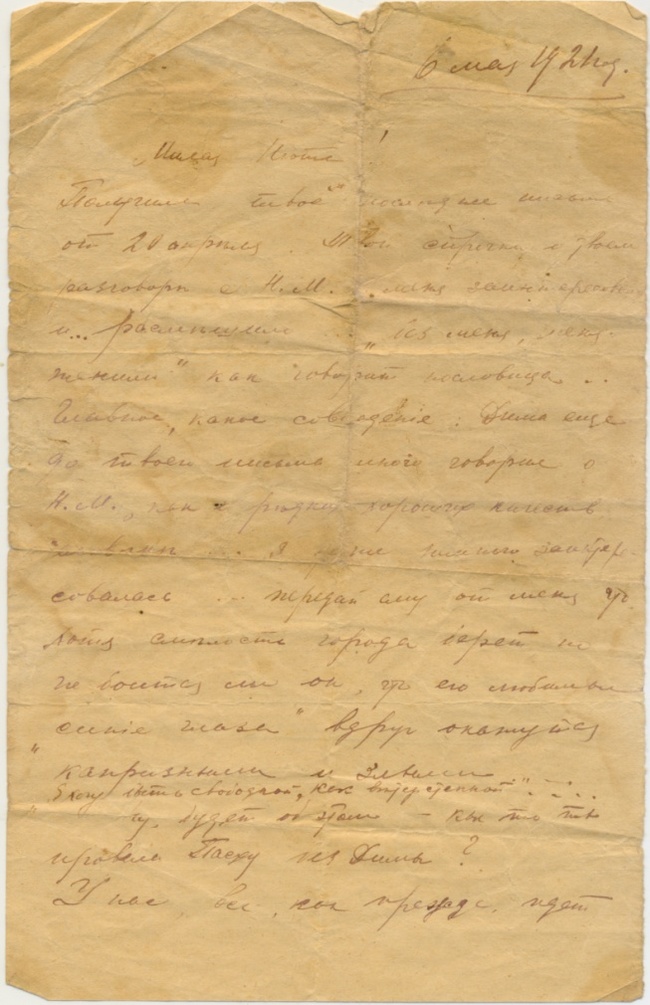 6 мая 1921 год.
Милая Нюта!
Получила твое последнее письмо
от 20 апреля. Твои строчки и твои
разговоры с Н.М. меня заинтересовали
и... рассмешили ... „Без меня, меня
женили" как говорит пословица...
Главное, какое совпадение: Дима еще
до твоего письма много говорил о
Н.М., как о редких хороших качеств
... Я даже немного заинтере-
совалась ... передай ему от меня что
хотя смелость города берет но
не боится ли он, что его любимые
синие глаза" вдруг окажутся
"капризными и злыми
Я хочу быть свободной, как ветер степной" ....
ну, будет об этом — как то ты
провела Пасху без Димы?
У нас все, как прежде, идет